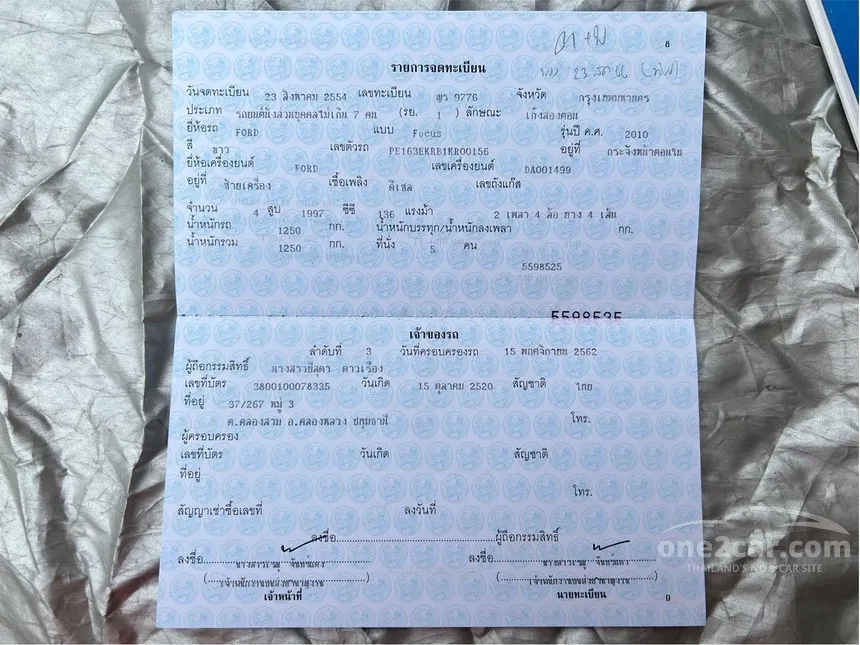 8
รายการจดทะเบียน
วันจดทะเบียน 23 สิงหาคม 2554 เลขทะเบียน 9776 จังหวัด กรุงเทพมหานคร
ประเภท รถยนต์นั่งส่วนบุคคลไม่เกิน 7 คน (รย. 1) ลักษณะ เก๋งสองตอน
ยี่ห้อรถ FORD แบบ Focus รุ่นปี ค.ศ. 2010
สี ขาว เลขตัวรถ PE163EKRB1KR00156 อยู่ที่ กระจังหน้าตอนใน
ยี่ห้อเครื่องยนต์ FORD เลขเครื่องยนต์ DA001499
อยู่ที่ ซ้ายเครื่อง เชื้อเพลิง ดีเซล เลขถังแก๊ส
จำนวน 4 สูบ 1997 ซีซี 136 แรงม้า 2 เพลา 4 ล้อ ยาง 4 เส้น
น้ำหนักรถ 1250 กก. น้ำหนักบรรทุก/น้ำหนักลงเพลา กก.
น้ำหนักรวม 1250 กก. ที่นั่ง 5 คน
5598525
เจ้าของรถ
ลำดับที่ 3 วันที่ครอบครองรถ 15 พฤศจิกายน 2562
ผู้ถือกรรมสิทธิ์ ดาวเรือง
เลขที่บัตร 3800100078335 วันเกิด 15 ตุลาคม 2520 สัญชาติ ไทย
ที่อยู่ 37/267 หมู่ 3
ต.คลองสาม อ.คลองหลวง ปทุมธานี โทร.
ผู้ครอบครอง
เลขที่บัตร วันเกิด สัญชาติ
ที่อยู่
โทร.
สัญญาเช่าซื้อเลขที่ ลงวันที่
ลงชื่อ ผู้ถือกรรมสิทธิ์
ลงชื่อ ลงชื่อ
เจ้าหน้าที่ นายทะเบียน
9
one2car.com
THAILAND'S NO.1 CAR SITE